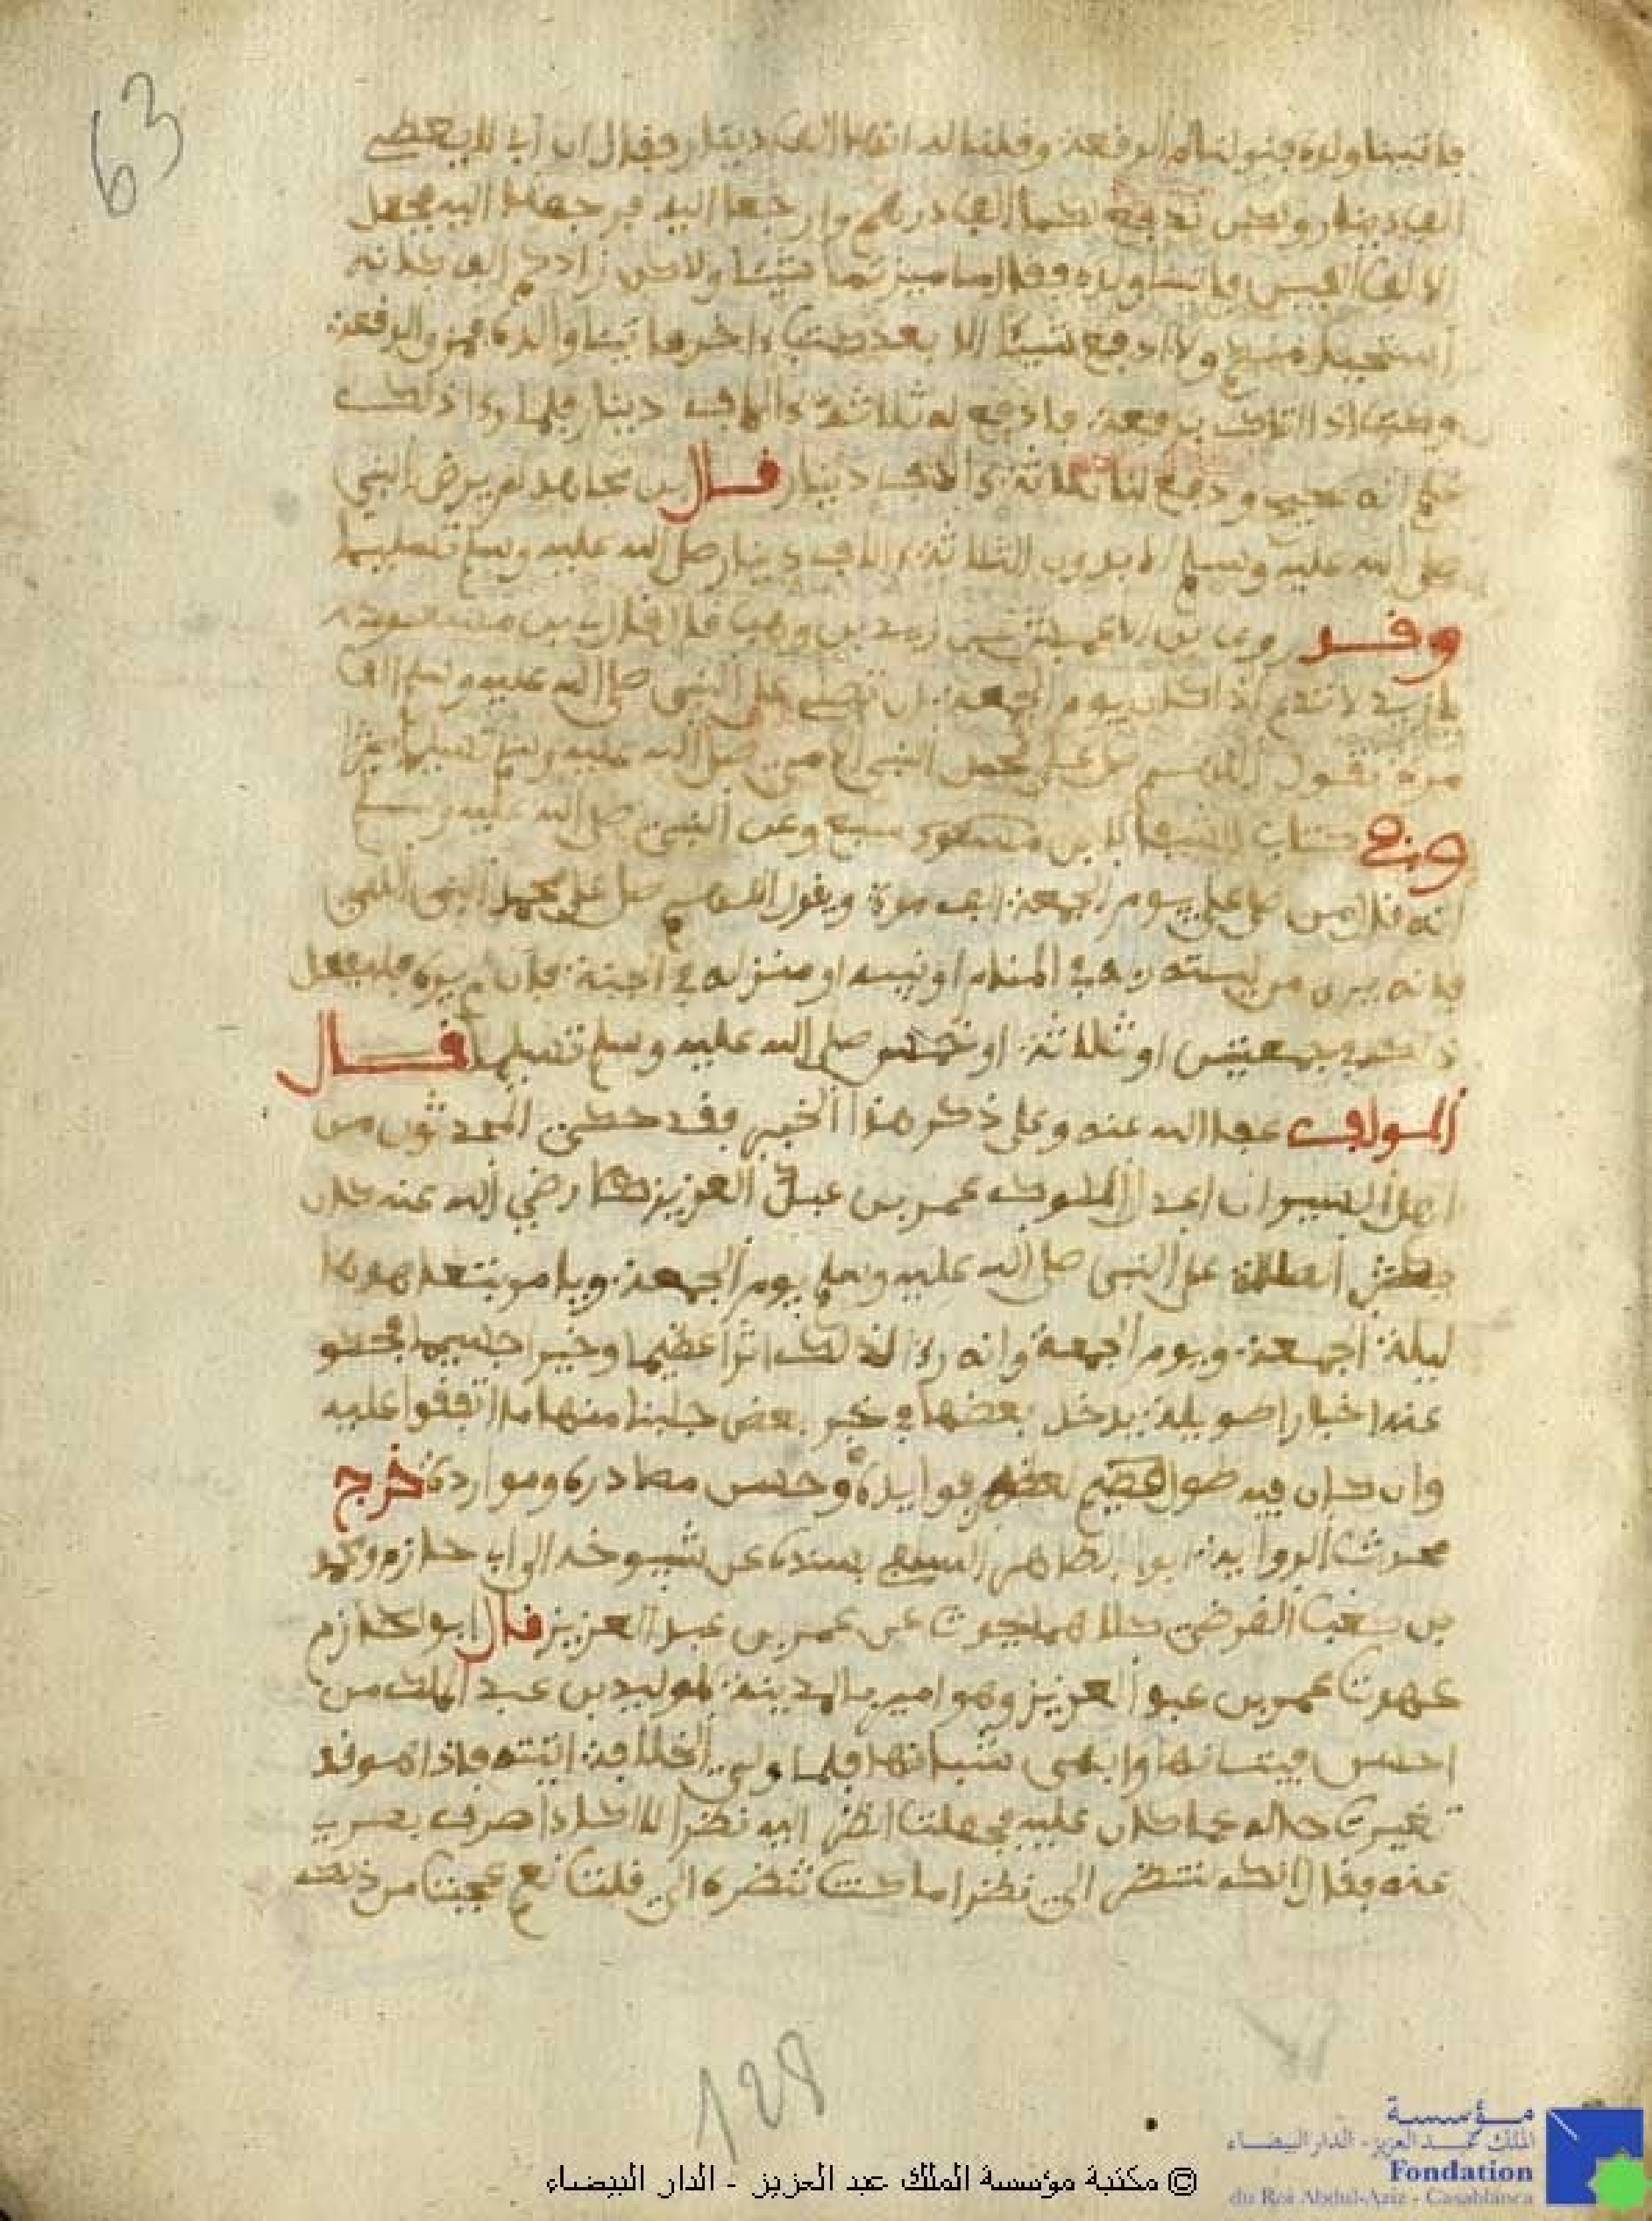 63
فاتينا ولده فناولناه الرقعة وقلنا له انها الف دينار فقال ان ابي لا يعطي
الف دينار ولكن ندفع لكما الف درهم وارجعا اليه فرجعنا اليه فجعل
الالف الفين فاتينا ولده فقال ما ميزتما شيئا ولاكن زادكم الف كانه
ولا ادفع شيئا الا بعد والده
اذا اتاك برقعة فادفع له ثلاثة ءالاف دينار فلما رءا ذلك
علم انه ودفع لنا ثلاثة ءالاف دينار قال بن مجاهد لم يرض النبي
صلى الله عليه وسلم الا بدون الثلاثة ءالاف دينار صلى الله عليه وسلم تسليما
وقد روى عن الاعمش عن زيد بن وهب قال قال بن مسعود
يا زيد لا تدع اذا كان يوم الجمعة ان تصلي على النبي صلى الله عليه وسلم الف
مرة تقول اللهم صل على محمد النبي الامي صلى الله عليه وسلم تسليما
وفي كتاب الشفا لابن سبع وعن النبي صلى الله عليه وسلم
انه قال من صلى علي يوم الجمعة الف مرة ويقول اللهم صل على محمد النبي الامي
فانه يرى من ليلته ربه في المنام او نبيه او منزله في الجنة فان لم يره فليفعل
ذلك في جمعتين او ثلاثة او خمس صلى الله عليه وسلم تسليما قال
المولف عفا الله عنه وعلى ذكر هذا الخبر فقد حكى المحدثون من
اهل السير ان اعدل الملوك عمر بن عبد العزيز رضي الله عنه كان
يكثر الصلاة على النبي صلى الله عليه وسلم يوم الجمعة ويامر بتعاهدها
ليلة الجمعة ويوم الجمعة وانه رءا لذلك اثرا عظيما وخيرا جسيما
عنه اخبارا طويلة يدخل بعضها في خبر بعض جلبنا منها ما اتفقوا عليه
وان كان فيه طول لعظيم فوايده وحسن مصادره وموارده خرج
محدث الرواية ابو الطاهر السلفي بسنده عن شيوخه الى ابي حازم ومحمد
بن كعب القرضي كلاهما يحدث عن عمر بن عبد العزيز قال ابو حازم
عهدت عمر بن عبد العزيز وهو امير بالمدينة للوليد بن عبد الملك من
احسن فتيانها وابهى شبانها فلما ولي الخلافة اتيته فاذا هو قد
تغيرت حاله عما كان عليه فجعلت انظر اليه نظرا لا اكاد اصرف بصري
عنه فقال انك لتنظر الي نظرا ما كنت تنظره الي قلت نعم عجبت من ذلك
128
مؤسسة
الملك عبد العزيز - الدار البيضاء
Fondation
du Roi Abdul-Aziz - Casablanca
© مكتبة مؤسسة الملك عبد العزيز - الدار البيضاء